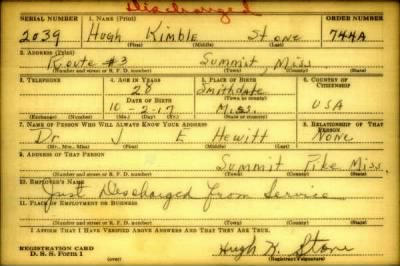 Discharged
SERIAL NUMBER 1. NAME (Print) ORDER NUMBER
2039 Hugh Kimble Stone 744A
(First) (Middle) (Last)
2. ADDRESS (Print)
Route #3 Summit, Miss
(Number and street or R. F. D. number) (Town) (County) (State)
3. TELEPHONE 4. AGE IN YEARS 5. PLACE OF BIRTH 6. COUNTRY OF CITIZENSHIP
28 Smithdale
DATE OF BIRTH (Town or county)
10-2-17 Miss. USA
(Exchange) (Number) (Mo.) (Day) (Yr.) (State or country)
7. NAME OF PERSON WHO WILL ALWAYS KNOW YOUR ADDRESS 8. RELATIONSHIP OF THAT PERSON
Dr J E Hewitt None
(Mr., Mrs., Miss) (First) (Middle) (Last)
9. ADDRESS OF THAT PERSON
Summit Pike Miss.
(Number and street or R. F. D. number) (Town) (County) (State)
10. EMPLOYER'S NAME
Just Descharged from Service
11. PLACE OF EMPLOYMENT OR BUSINESS
(Number and street or R. F. D. number) (Town) (County) (State)
I AFFIRM THAT I HAVE VERIFIED ABOVE ANSWERS AND THAT THEY ARE TRUE.
REGISTRATION CARD
D. S. S. Form 1
Hugh K. Stone
(Registrant's signature)